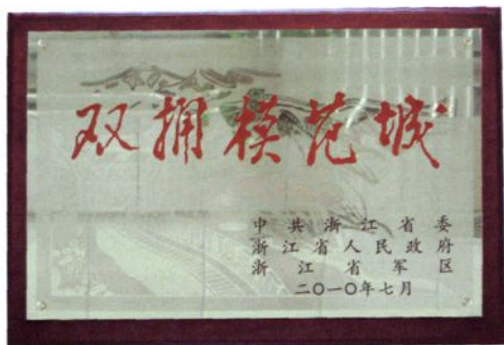 双拥模范城
中共浙江省委
浙江省人民政府
浙江省军区
二〇一〇年七月